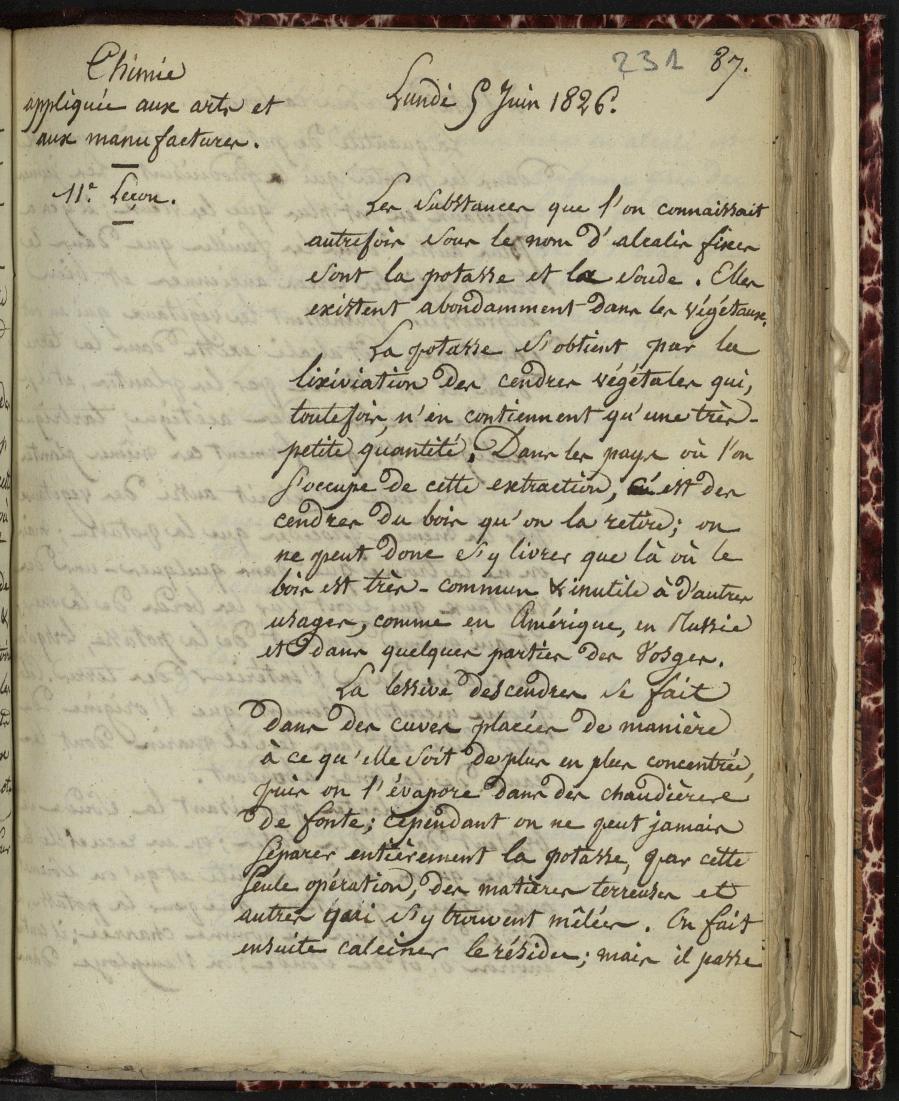 Chimie
appliquée aux arts et
aux manufactures.
11e. Leçon.
231 87.
Lundi 5 Juin 1826.
Les substances que l'on connaissait
autrefois sous le nom d'alcalis fixes
sont la potasse et la soude. Elles
existent abondamment dans les végétaux.
La potasse s'obtient par la
lixiviation des cendres végétales qui,
toutefois, n'en contiennent qu'une très-
petite quantité. Dans les pays où l'on
s'occupe de cette extraction, c'est des
cendres du bois qu'on la retire; on
ne peut donc s'y livrer que là où le
bois est très-commun & inutile à d'autres
usages, comme en Amérique, en Russie
et dans quelques parties des Vosges.
La lessive des cendres se fait
dans des cuves placées de manière
à ce qu'elle soit de plus en plus concentrée,
puis on l'évapore dans des chaudières
de fonte; cependant on ne peut jamais
séparer entièrement la potasse, par cette
seule opération, des matières terreuses et
autres qui s'y trouvent mêlées. On fait
ensuite calciner le résidu; mais il passe